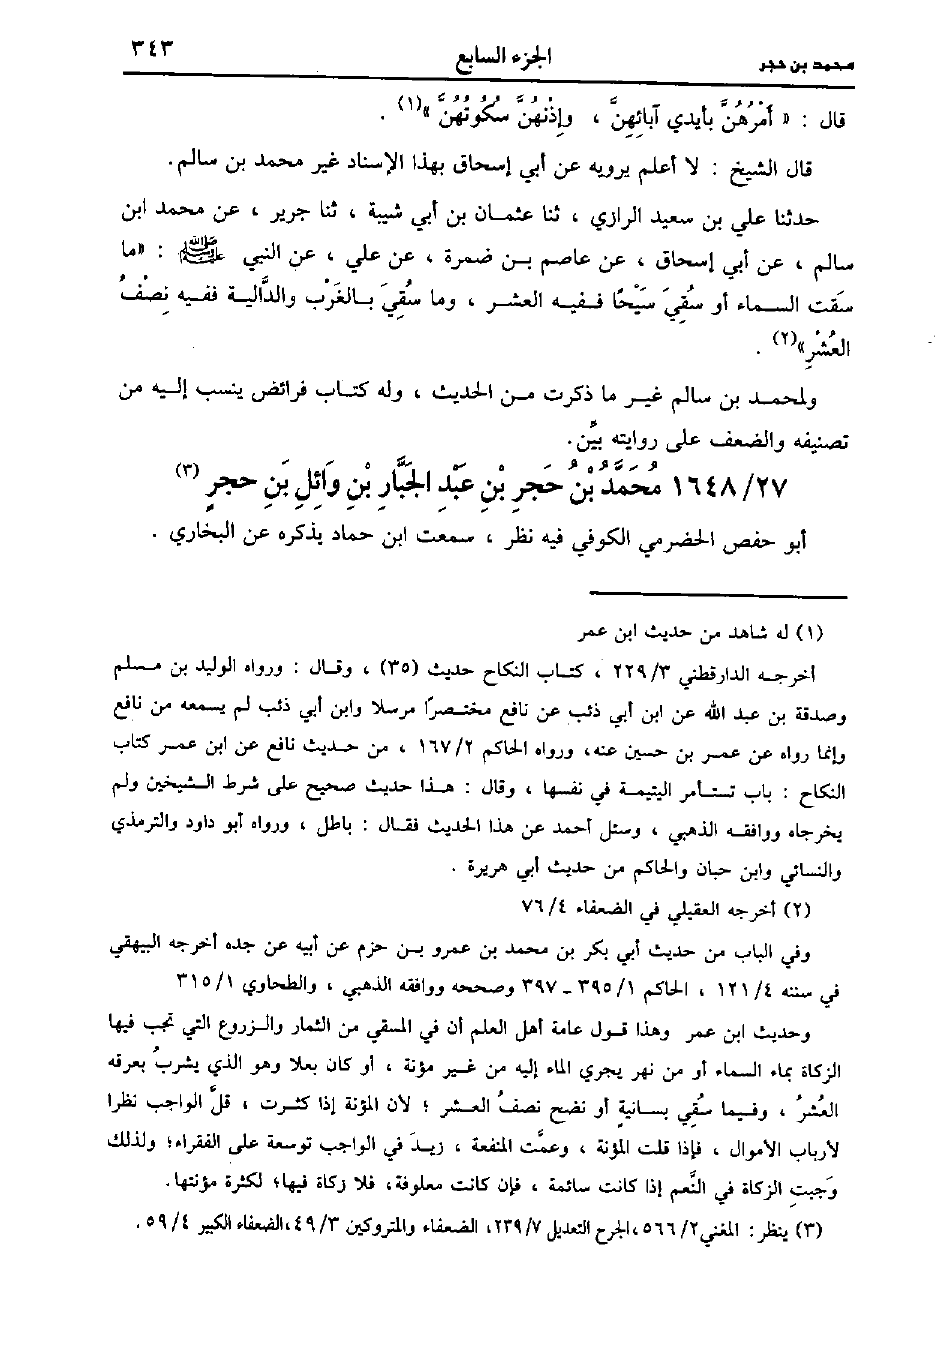 محمد بن حجر
الجزء السابع
٣٤٣
قال : « أَمْرُهُنَّ بأيدي آبائِهِنَّ ، وإِذْنُهُنَّ سُكُوتُهُنَّ »(١) .
قال الشيخ : لا أعلم يرويه عن أبي إسحاق بهذا الإسناد غير محمد بن سالم.
حدثنا علي بن سعيد الرازي ، ثنا عثمان بن أبي شيبة ، ثنا جرير ، عن محمد ابن
سالم ، عن أبي إسحاق ، عن عاصم بن ضمرة ، عن علي ، عن النبي ﷺ : «ما
سقت السماء أو سُقِيَ سَيْحًا ففيه العشر ، وما سُقِيَ بالغَرْب والدَّالية ففيه نِصْفُ
العُشْرِ»(٢) .
ولمحمد بن سالم غير ما ذكرت من الحديث ، وله كتاب فرائض ينسب إليه من
تصنيفه والضعف على روايته بيِّن.
١٦٤٨/٢٧ مُحَمَّدُ بْنُ حَجَرِ بْنِ عَبْدِ الجَبَّارِ بْنِ وَائِلِ بَنِ حجرٍ (٣)
أبو حفص الحضرمي الكوفي فيه نظر ، سمعت ابن حماد يذكره عن البخاري .
(١) له شاهد من حديث ابن عمر
أخرجه الدارقطني ٢٢٩/٣ ، كتاب النكاح حديث (٣٥) ، وقال : ورواه الوليد بن مسلم
وصدقة بن عبد الله عن ابن أبي ذئب عن نافع مختصرًا مرسلا وابن أبي ذئب لم يسمعه من نافع
وإنما رواه عن عمر بن حسين عنه، ورواه الحاكم ١٦٧/٢ ، من حديث نافع عن ابن عمر كتاب
النكاح : باب تستأمر اليتيمة في نفسها ، وقال : هذا حديث صحيح على شرط الشيخين ولم
يخرجاه ووافقه الذهبي ، وسئل أحمد عن هذا الحديث فقال : باطل ، ورواه أبو داود والترمذي
والنسائي وابن حبان والحاكم من حديث أبي هريرة .
(٢) أخرجه العقيلي في الضعفاء ٧٦/٤
وفي الباب من حديث أبي بكر بن محمد بن عمرو بن حزم عن أبيه عن جده أخرجه البيهقي
في سننه ١٢١/٤ ، الحاكم ٣٩٥/١ ـ ٣٩٧ وصححه ووافقه الذهبي ، والطحاوي ٣١٥/١
وحديث ابن عمر وهذا قول عامة أهل العلم أن في المسقي من الثمار والزروع التي تجب فيها
الزكاة بماء السماء أو من نهر يجري الماء إليه من غير مؤنة ، أو كان بعلا وهو الذي يشربُ بعرقه
العُشرُ ، وفيما سُقِي بسانية أو نضح نصفُ العشر ؛ لأن المؤنة إذا كثرت ، قلَّ الواجب نظرا
لأرباب الأموال ، فإذا قلت المؤنة ، وعمَّت المنفعة ، زيدَ في الواجب توسعة على الفقراء؛ ولذلك
وَجبتِ الزكاة في النَّعم إذا كانت سائمة ، فإن كانت معلوفة، فلا زكاة فيها؛ لكثرة مؤنتها.
(٣) ينظر: المغني ٥٦٦/٢ ،الجرح التعديل ٢٣٩/٧، الضعفاء والمتروكين ٤٩/٣ ،الضعفاء الكبير ٥٩/٤ .